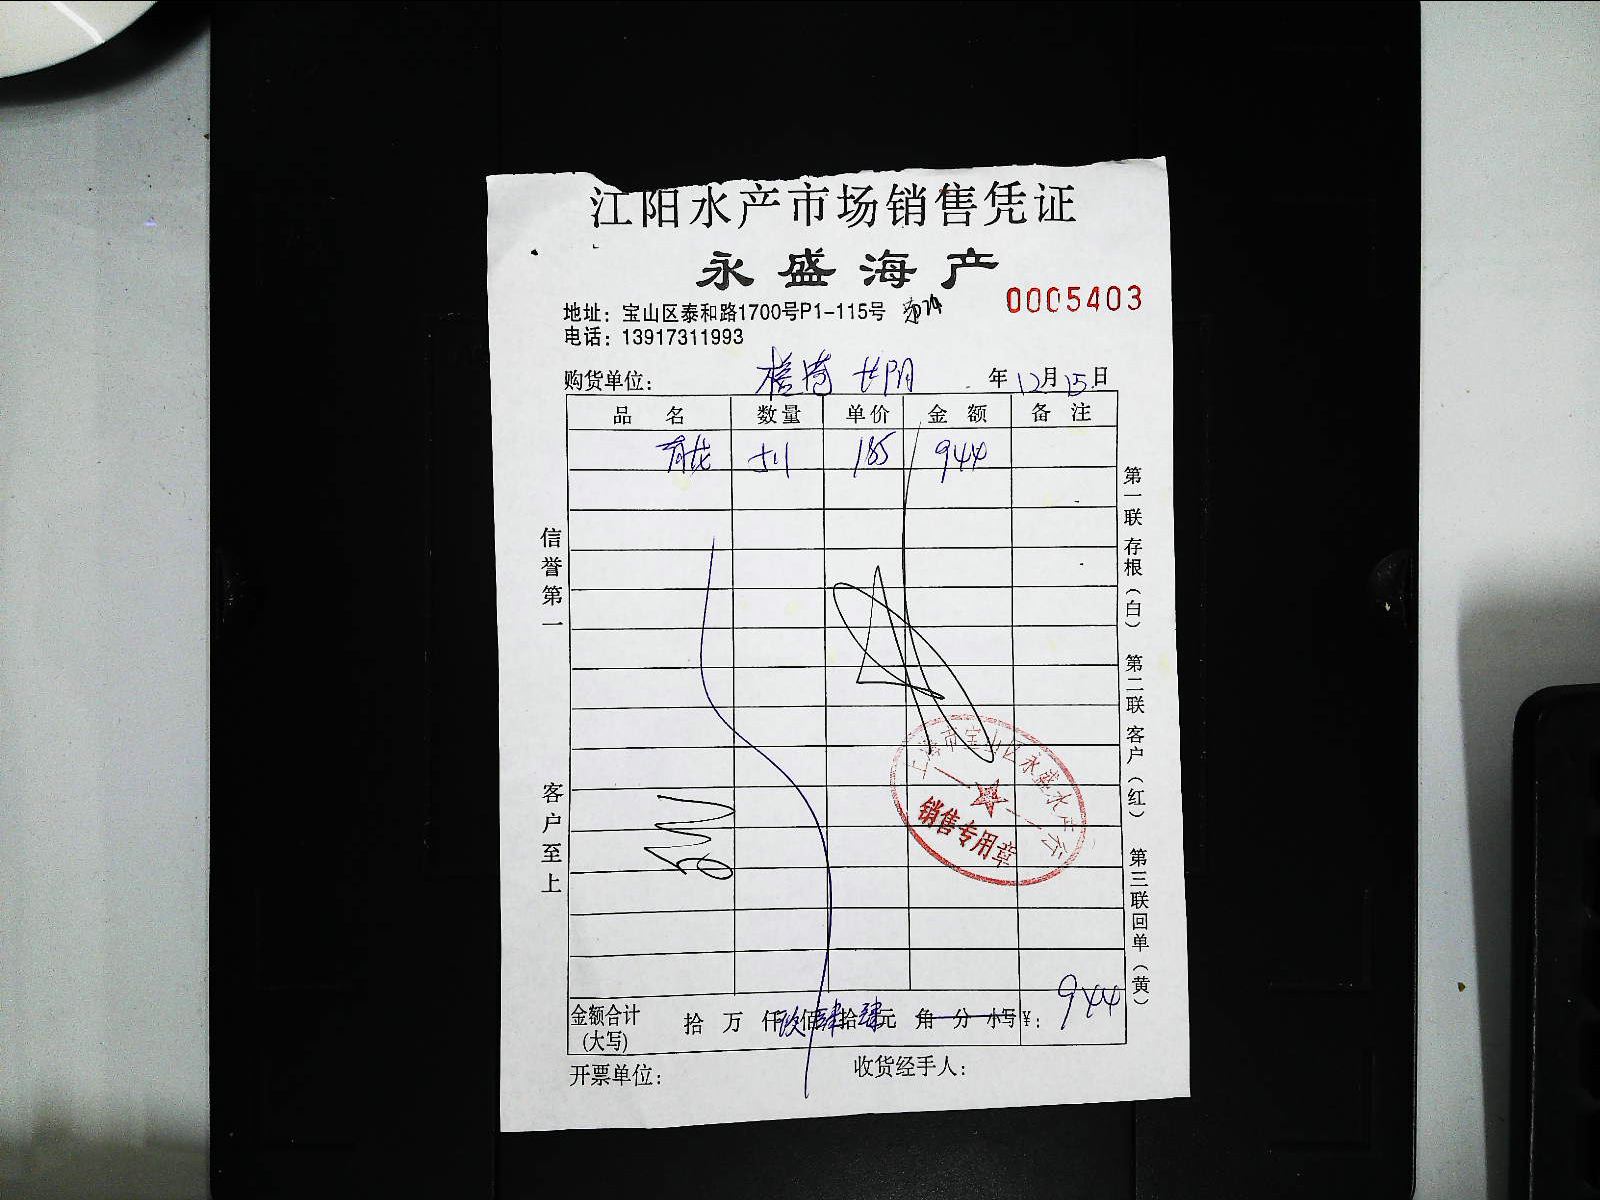 江阳水产市场销售凭证
永盛海产
0005403
地址：宝山区泰和路1700号P1-115号
电话：13917311993
购货单位： 年12月15日
品 名 数量 单价 金额 备注
青龙 185 944
信誉第一
客户至上
第一联 存根（白） 第二联 客户（红） 第三联 回单（黄）
上海市宝山区永盛水产行
销售专用章
金额合计（大写） 拾 万 仟玖佰肆拾肆元 角 分 小写¥：944
开票单位： 收货经手人：